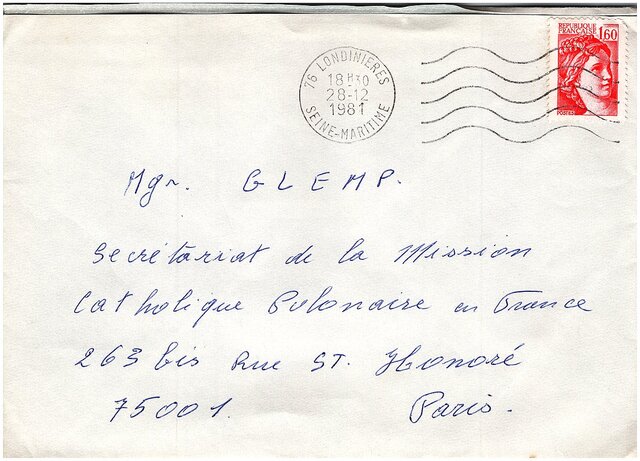 REPUBLIQUE
FRANÇAISE 1,60
POSTES
76 LONDINIERES
18 H 30
28-12
1981
SEINE-MARITIME
Mgr. GLEMP.
Secrétariat de la Mission
Catholique Polonaise en France
263 bis Rue ST. Honoré
75001. Paris.